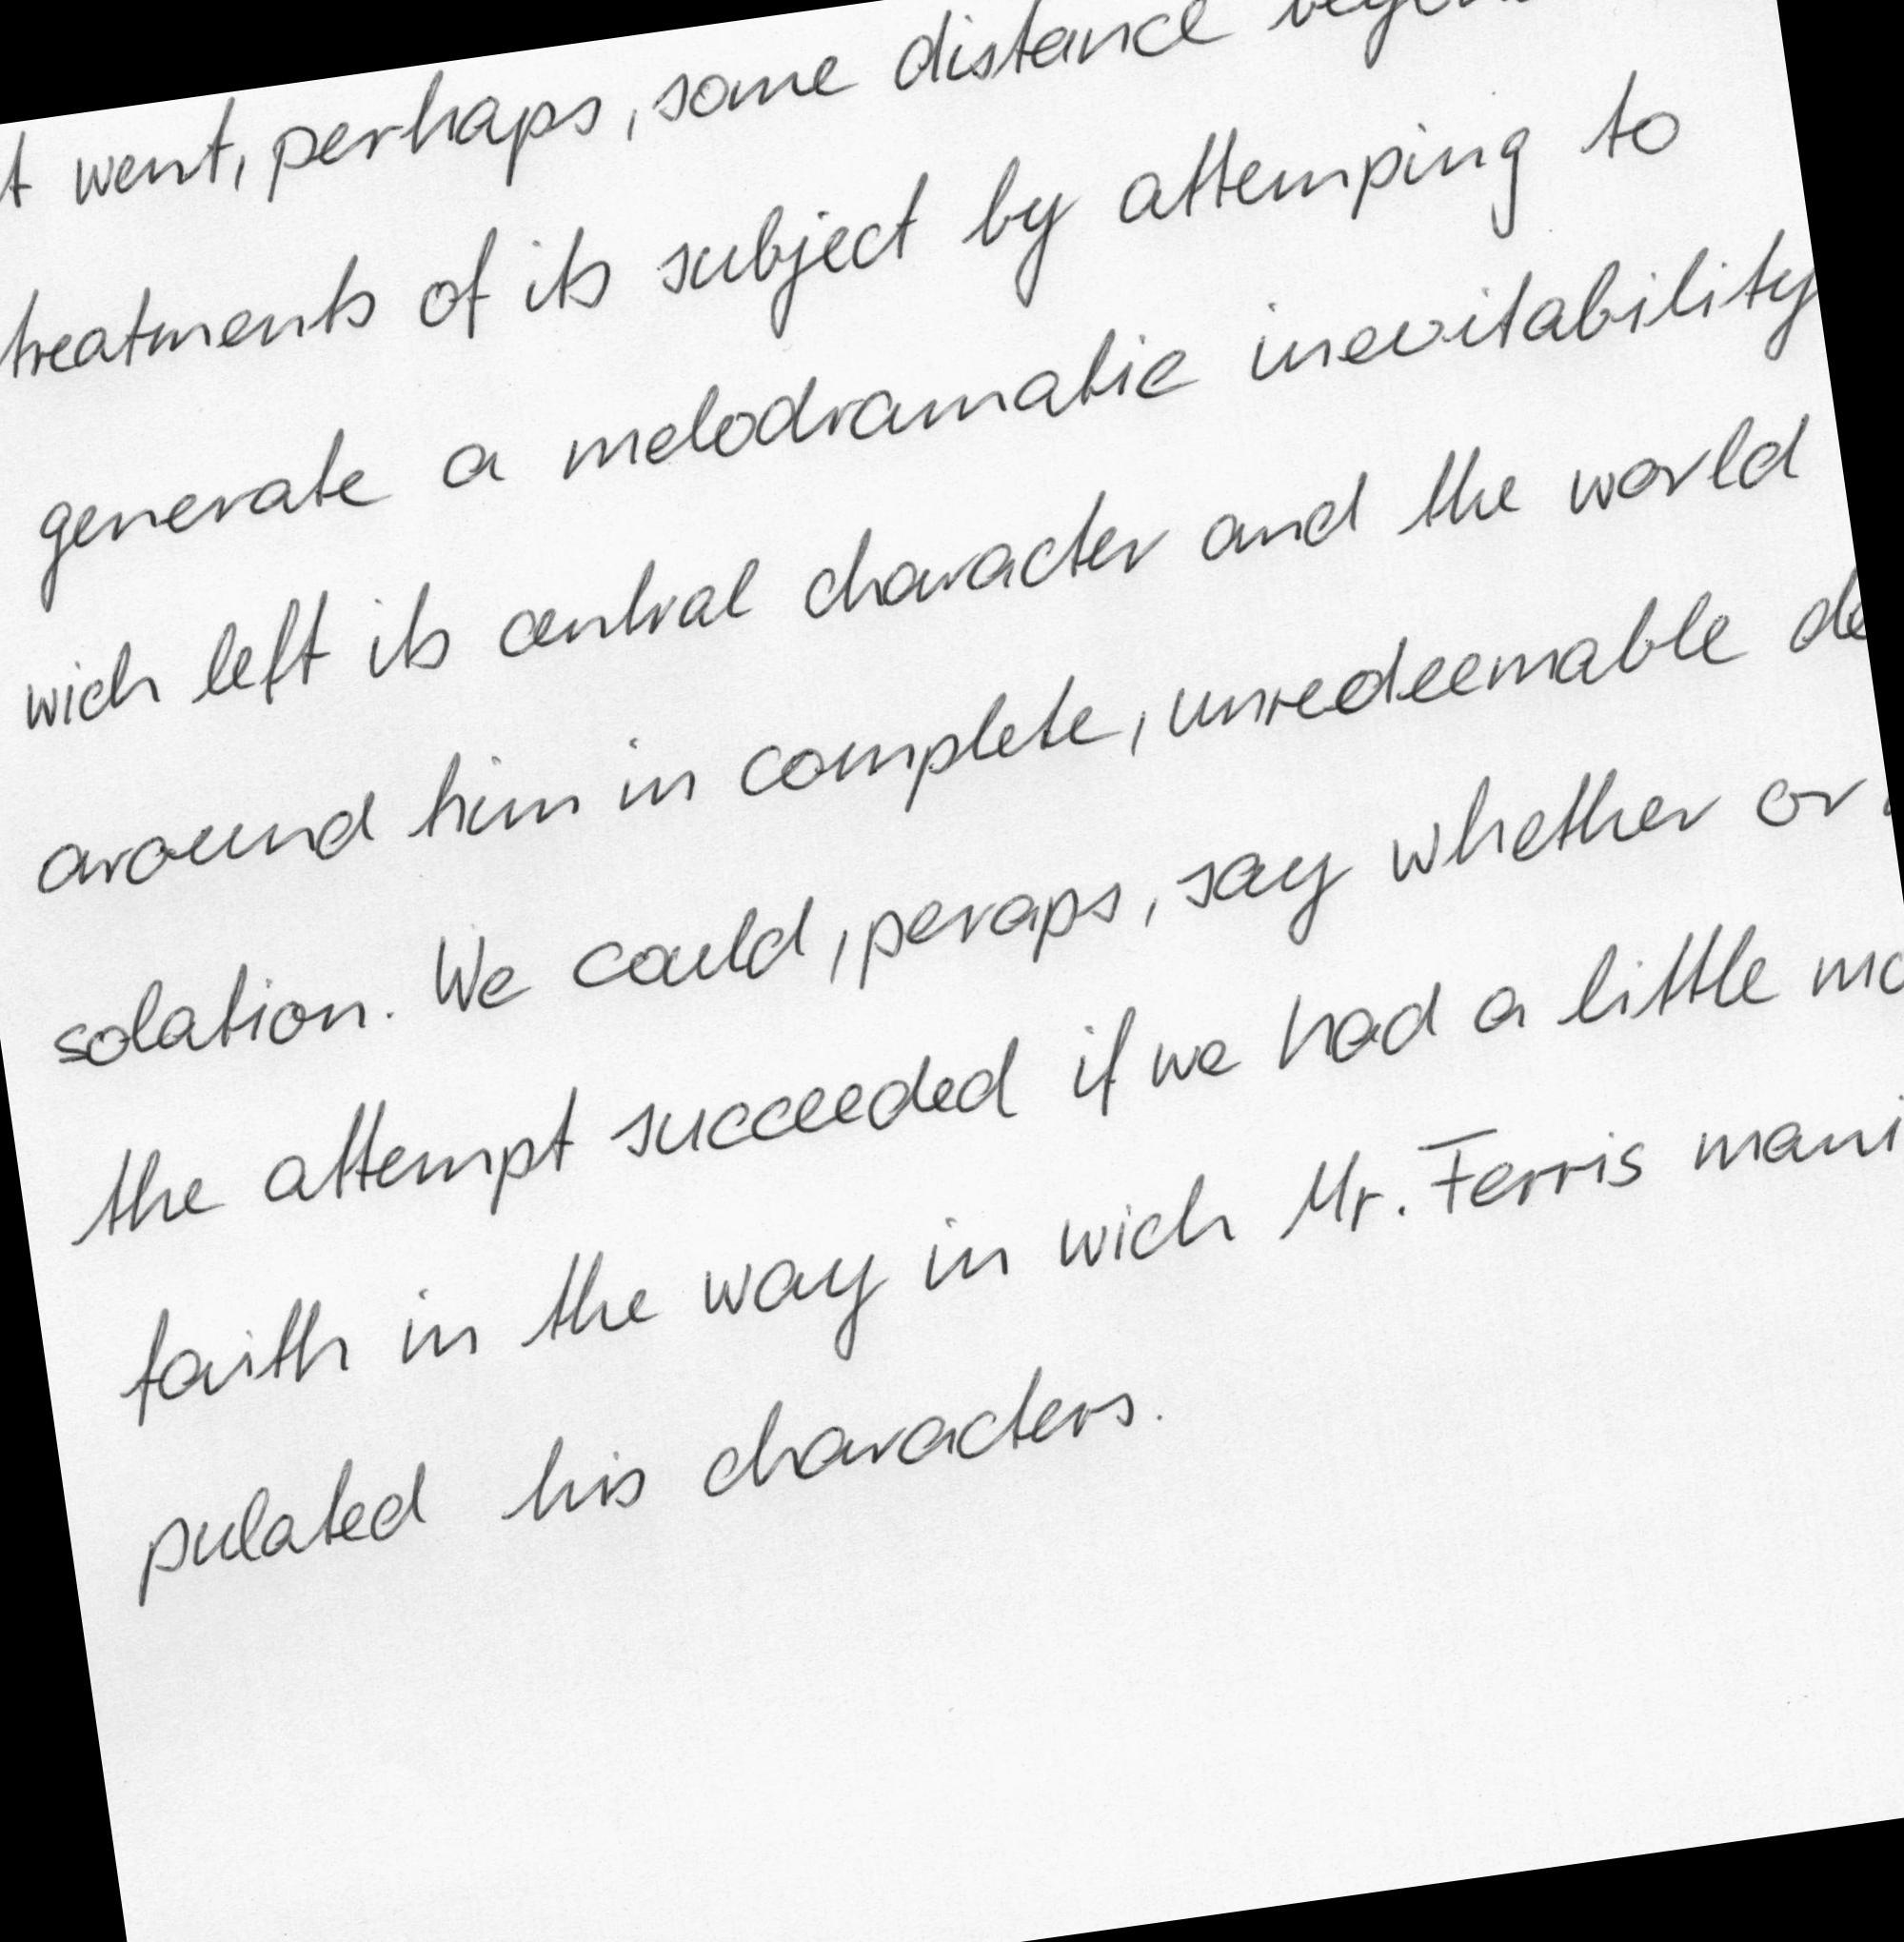 went, perhaps, some distance
treatments of its subject by attemping to
generate a melodramatic inevitability
wich left its central character and the world
around him in complete, unredeemable de
solation. We could, peraps, say whether or
the attempt succeeded if we had a little mo
faith in the way in wich Mr. Ferris mani
pulated his characters.